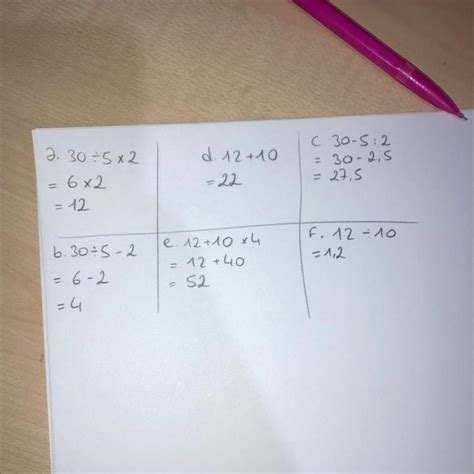 a. 30 ÷ 5 × 2
= 6 × 2
= 12
d. 12 + 10
= 22
c. 30 - 5 : 2
= 30 - 2,5
= 27,5
b. 30 ÷ 5 - 2
= 6 - 2
= 4
e. 12 + 10 × 4
= 12 + 40
= 52
f. 12 ÷ 10
= 1,2